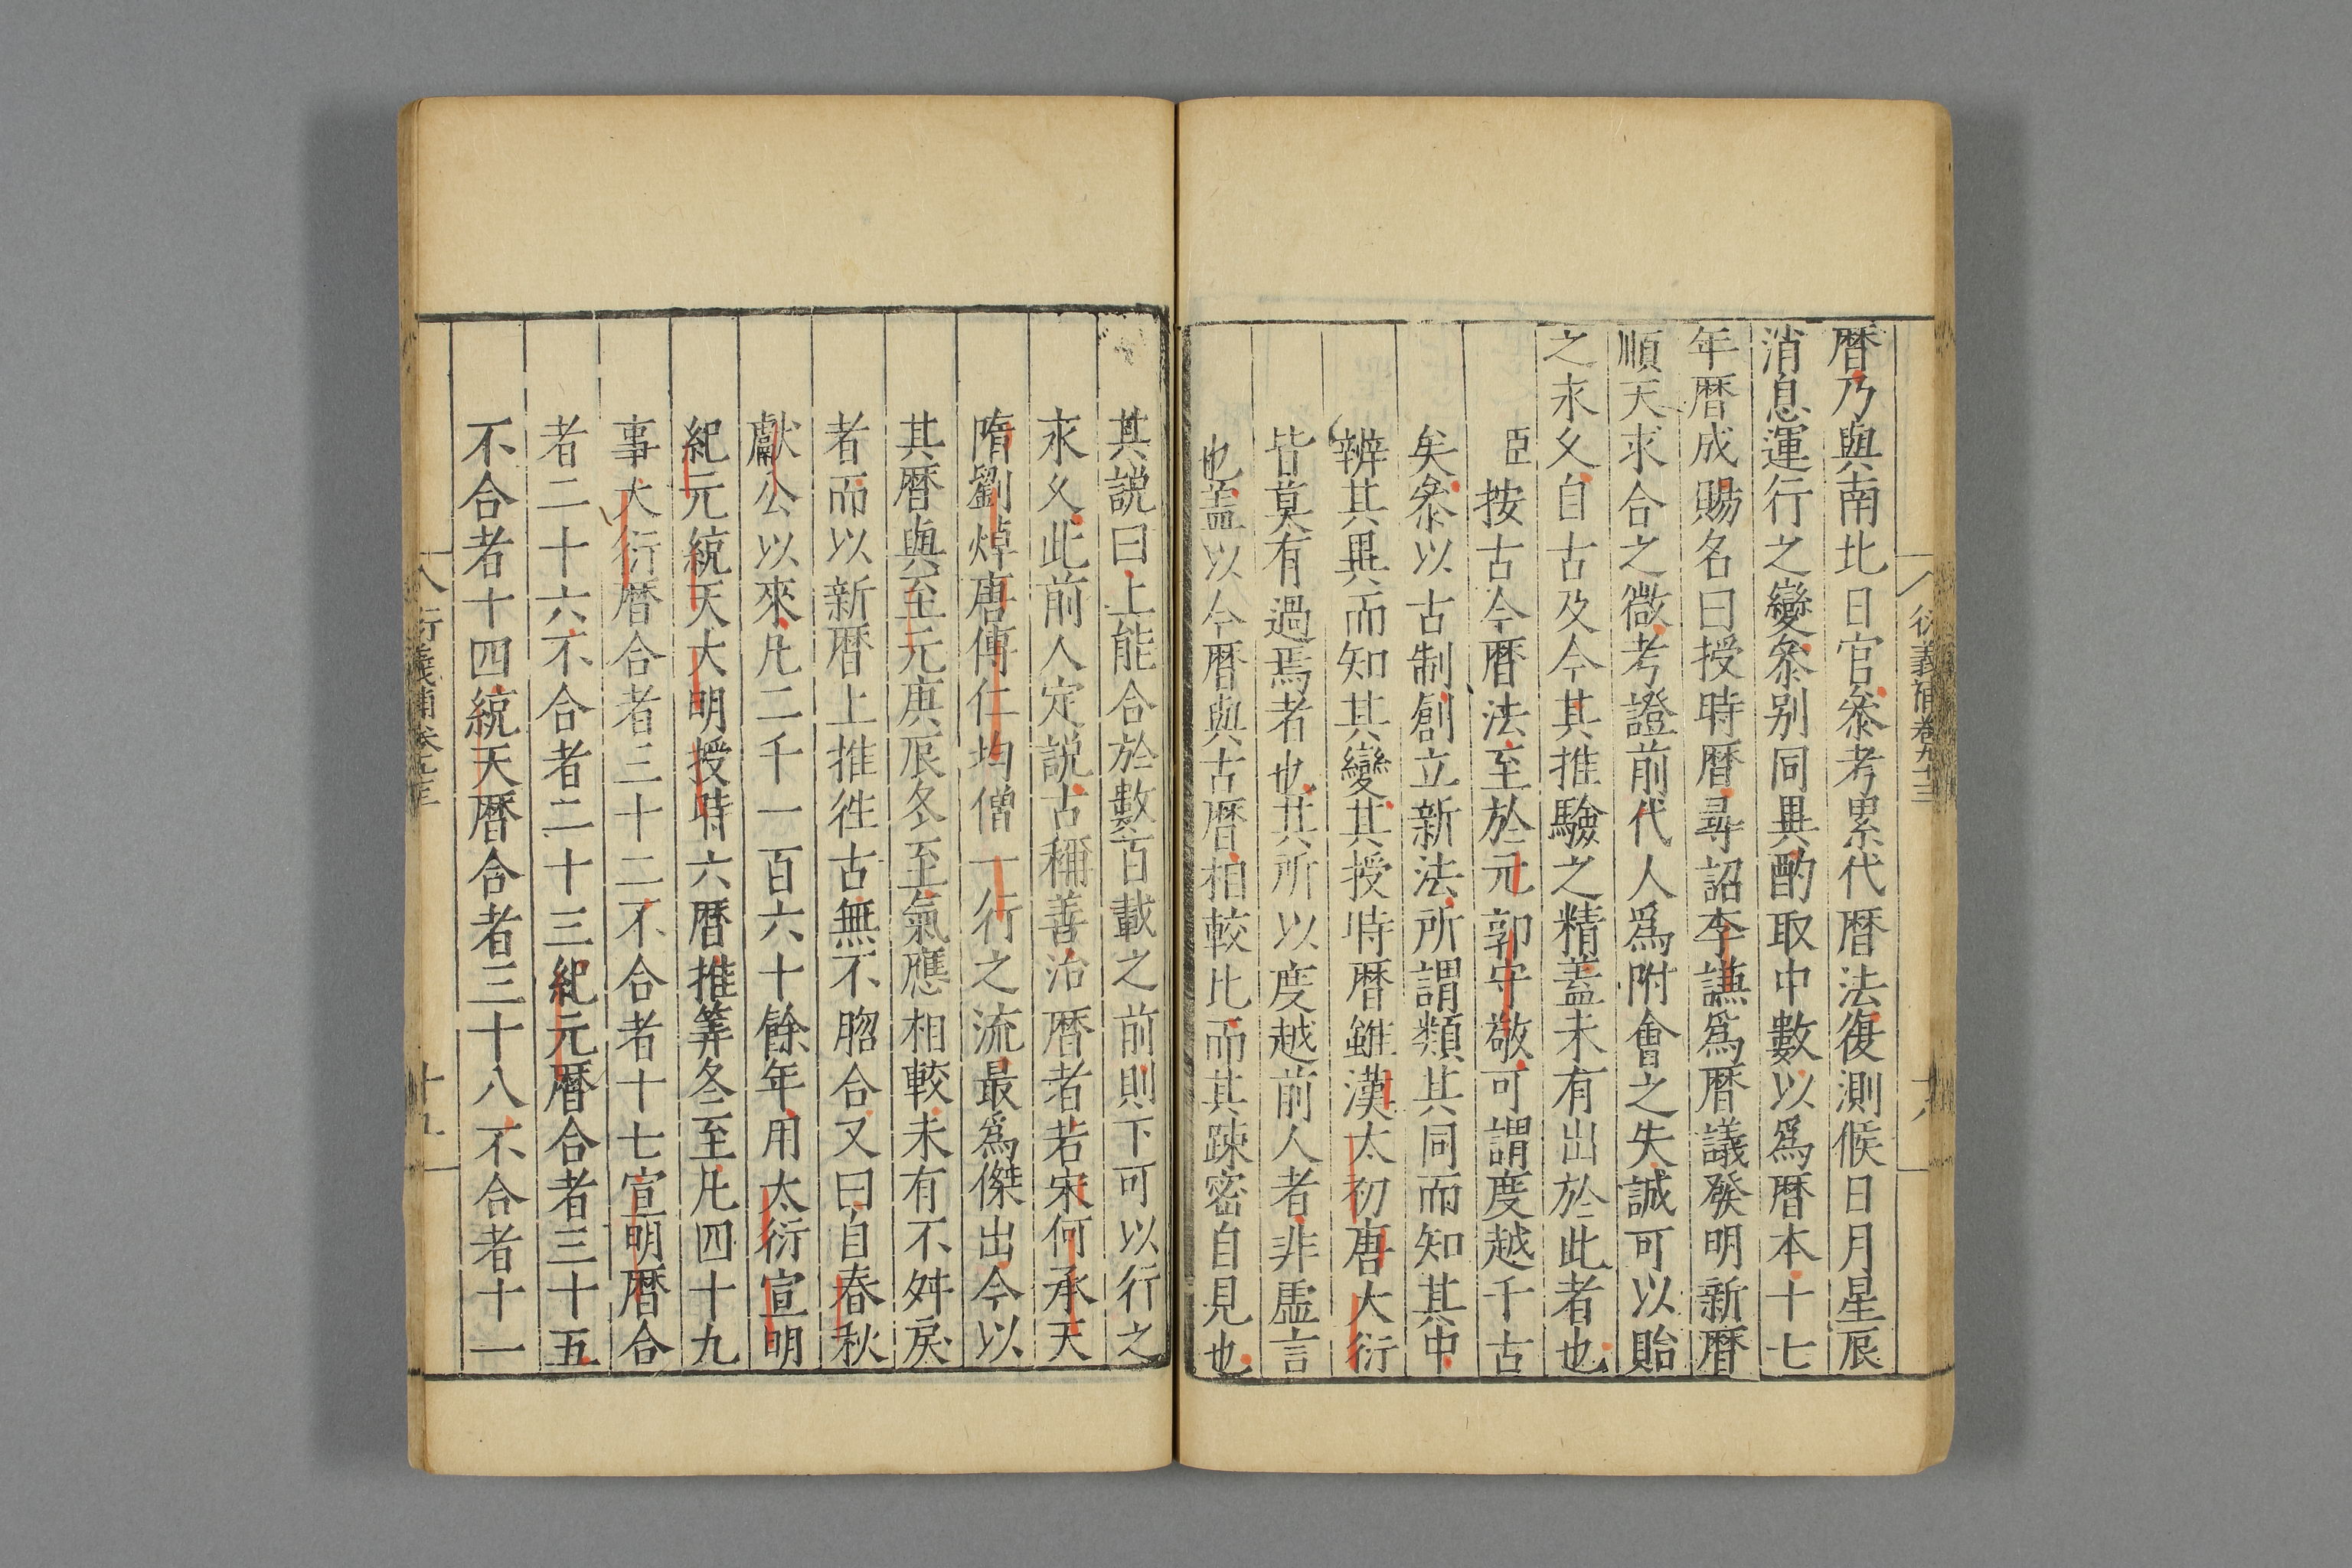 衍義補卷九十三
十八
曆乃與南北日官叅考累代曆法復測候日月星辰
消息運行之變叅别同異酌取中數以爲曆本十七
年曆成賜名曰授時曆尋詔李謙爲曆議發明新曆
順天求合之微考證前代人爲附會之失誠可以貽
之永久自古及今其推驗之精蓋未有出於此者也
臣按古今曆法至於元郭守敬可謂度越千古
矣叅以古制創立新法所謂類其同而知其中
辨其異而知其變其授時曆雖漢太初唐大衍
皆莫有過焉者也其所以度越前人者非虛言
也蓋以今曆與古曆相較比而其踈密自見也
其説曰上能合於數百載之前則下可以行之
永久此前人定説古稱善治曆者若宋何承天
隋劉焯唐傅仁均僧一行之流最爲傑出今以
其曆與至元庚辰冬至氣應相較未有不舛戾
者而以新曆上推徃古無不脗合又曰自春秋
獻公以來凡二千一百六十餘年用大衍宣明
紀元統天大明授時六曆推筭冬至凡四十九
事大衍曆合者三十二不合者十七宣明曆合
者二十六不合者二十三紀元曆合者三十五
不合者十四統天曆合者三十八不合者十一